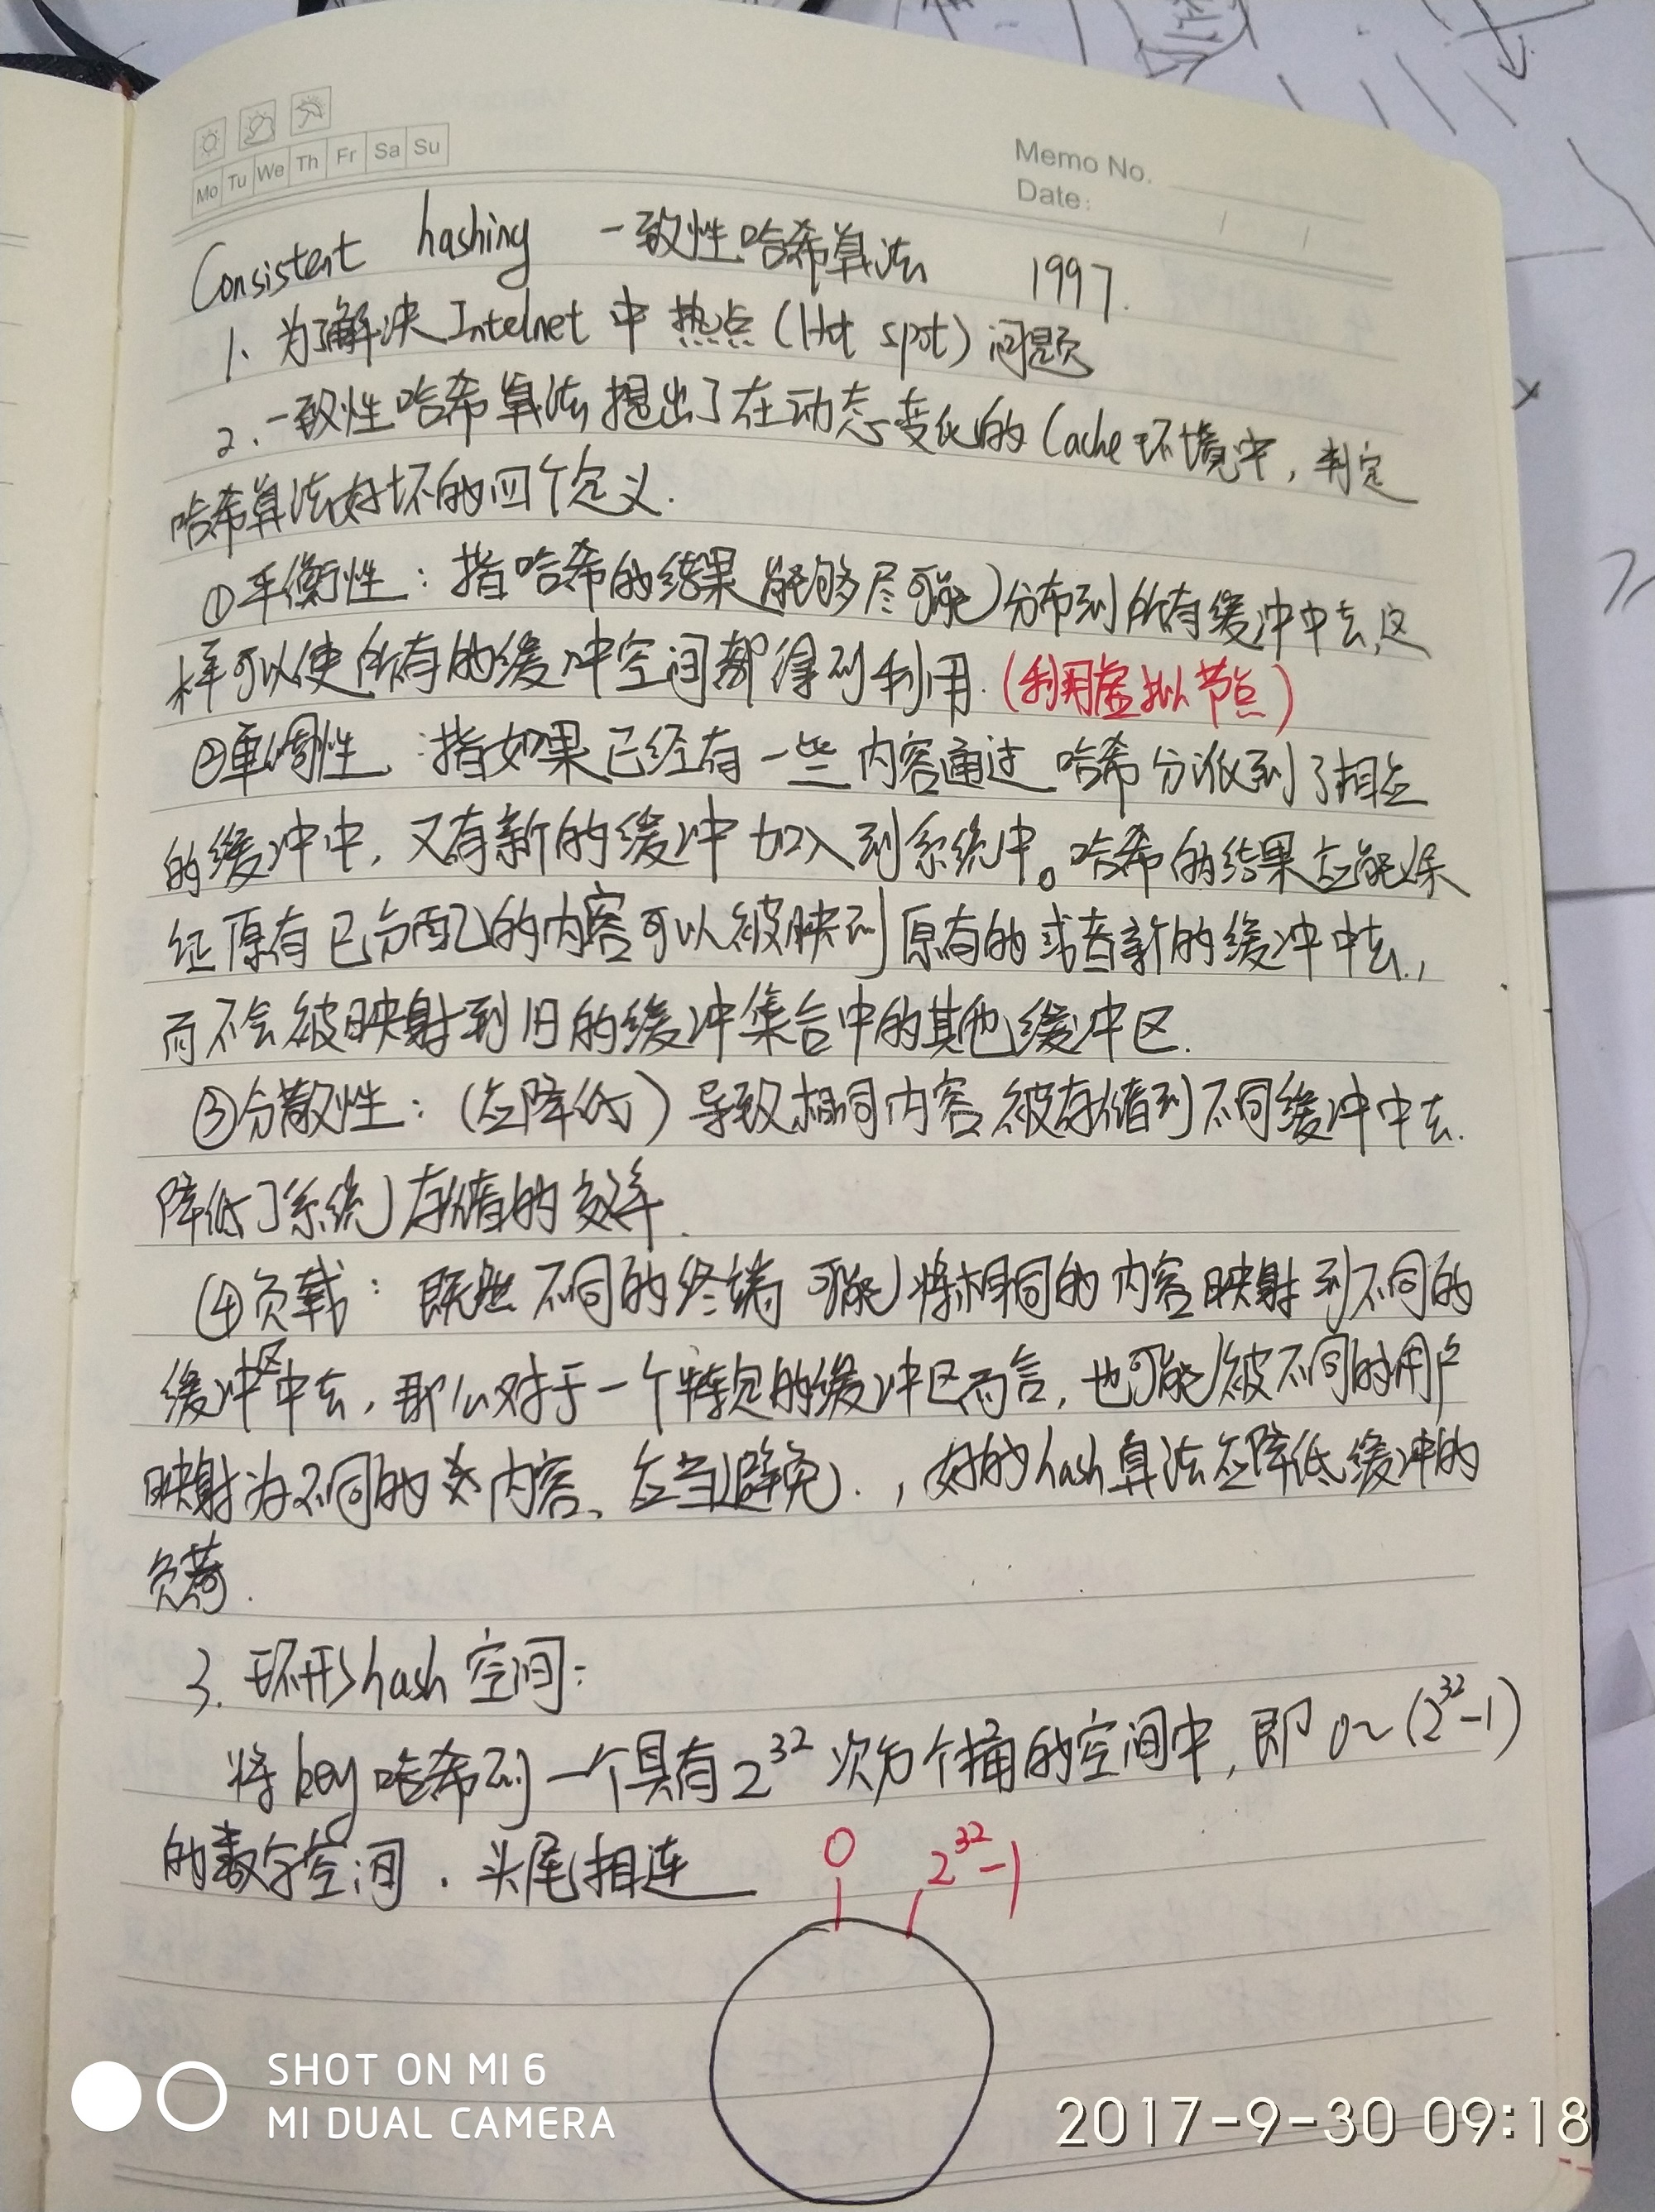 Mo Tu We Th Fr Sa Su
Memo No.
Date:
Consistent hashing 一致性哈希算法 1997.
1、为了解决Intelnet中热点(Hot spot)问题
2、一致性哈希算法提出了在动态变化的Cache环境中,判定
哈希算法好坏的四个定义.
①平衡性:指哈希的结果能够尽可能分布到所有缓冲中去,这
样可以使所有的缓冲空间都得到利用.(利用虚拟节点)
②单调性:指如果已经有一些内容通过哈希分派到了相应
的缓冲中,又有新的缓冲加入到系统中。哈希的结果应能保
证原有已分配的内容可以被映到原有的或者新的缓冲中去,
而不会被映射到旧的缓冲集合中的其他缓冲区.
③分散性:(应降低)导致相同内容被存储到不同缓冲中去.
降低了系统存储的效率.
④负载:既然不同的终端可能将相同的内容映射到不同的
缓冲区中去,那么对于一个特定的缓冲区而言,也可能被不同的用户
映射为不同的内容、应当避免.,好的hash算法应降低缓冲的
负荷.
3.环形hash空间:
将key哈希到一个具有2^32次方个桶的空间中,即0~(2^32-1)
的数字空间.头尾相连
0 2^32-1
SHOT ON MI 6
MI DUAL CAMERA
2017-9-30 09:18